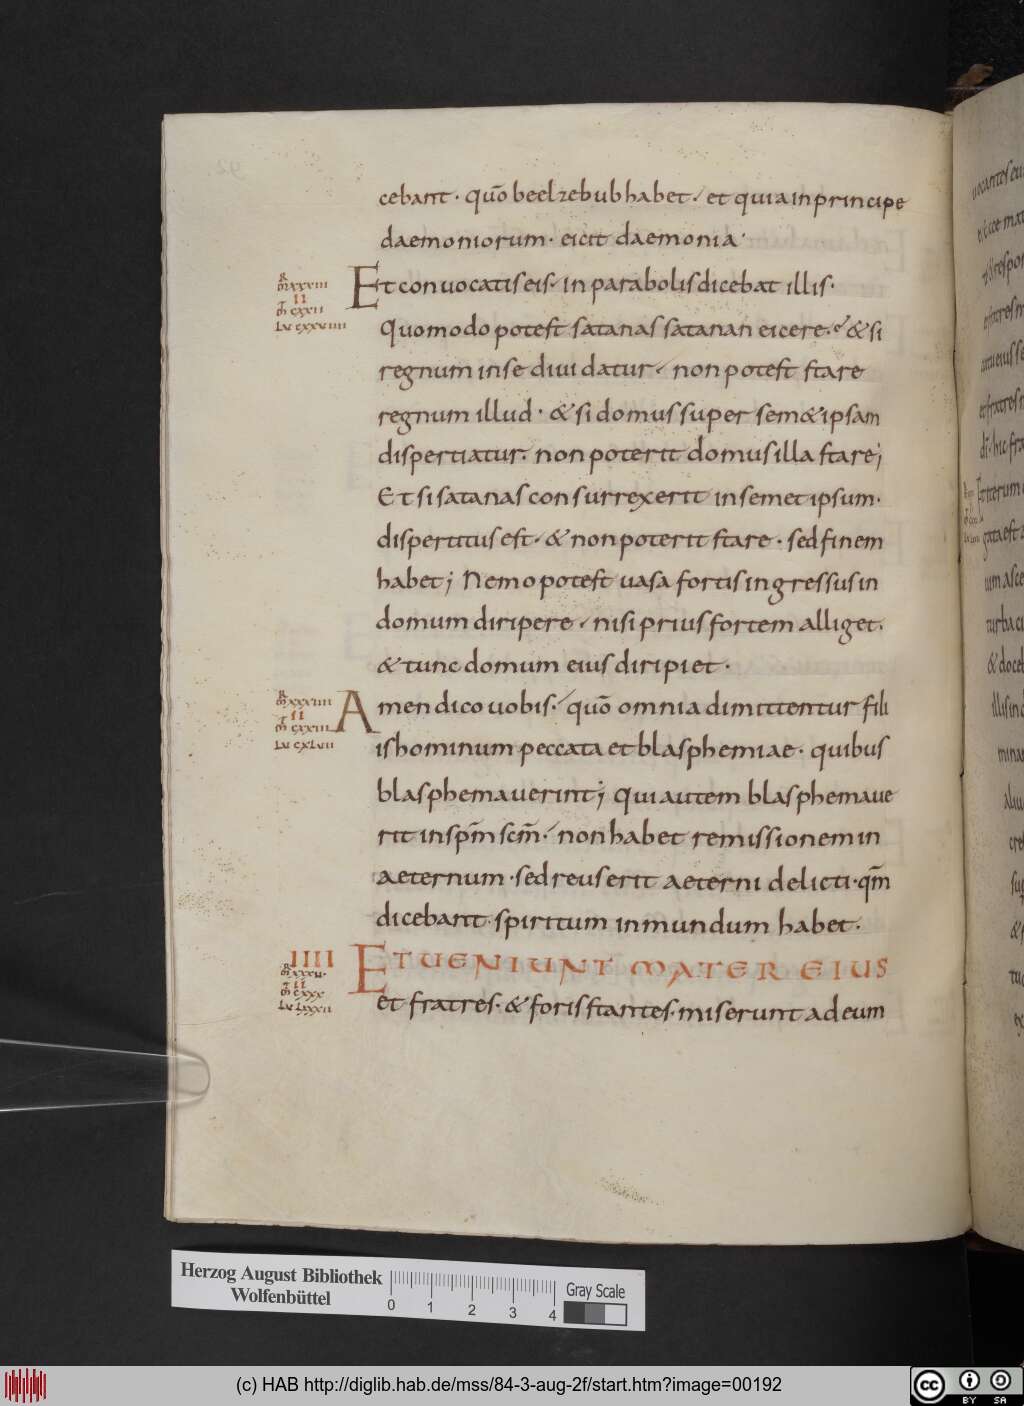 cebant · quō beelzebub habet · et quia in principe
daemoniorum · eicit daemonia ·
Et conuocatis eis · in parabolis dicebat illis ·
Quomodo potest satanas satanan eicere · & si
regnum in se diuidatur · non potest stare
regnum illud · & si domus super sem&ipsam
dispertiatur · non poterit domus illa stare;
Et si satanas consurrexerit in semetipsum ·
dispertitus est · & non poterit stare · sed finem
habet; Nemo potest uasa fortis ingressus in
domum diripere · nisi prius fortem alliget ·
& tunc domum eius diripiet ·
Amen dico uobis · quō omnia dimittentur fili
is hominum peccata et blasphemiae · quibus
blasphemauerint; Qui autem blasphemaue
rit in spm̄ scm̄ · non habet remissionem in
aeternum · sed reus erit aeterni delicti · qm̄
dicebant · spiritum inmundum habet ·
IIII
ET UENIUNT MATER EIUS
et fratres · & foris stantes · miserunt ad eum
Herzog August Bibliothek
Wolfenbüttel
0 1 2 3 4
Gray Scale
(c) HAB http://diglib.hab.de/mss/84-3-aug-2f/start.htm?image=00192
cc BY SA